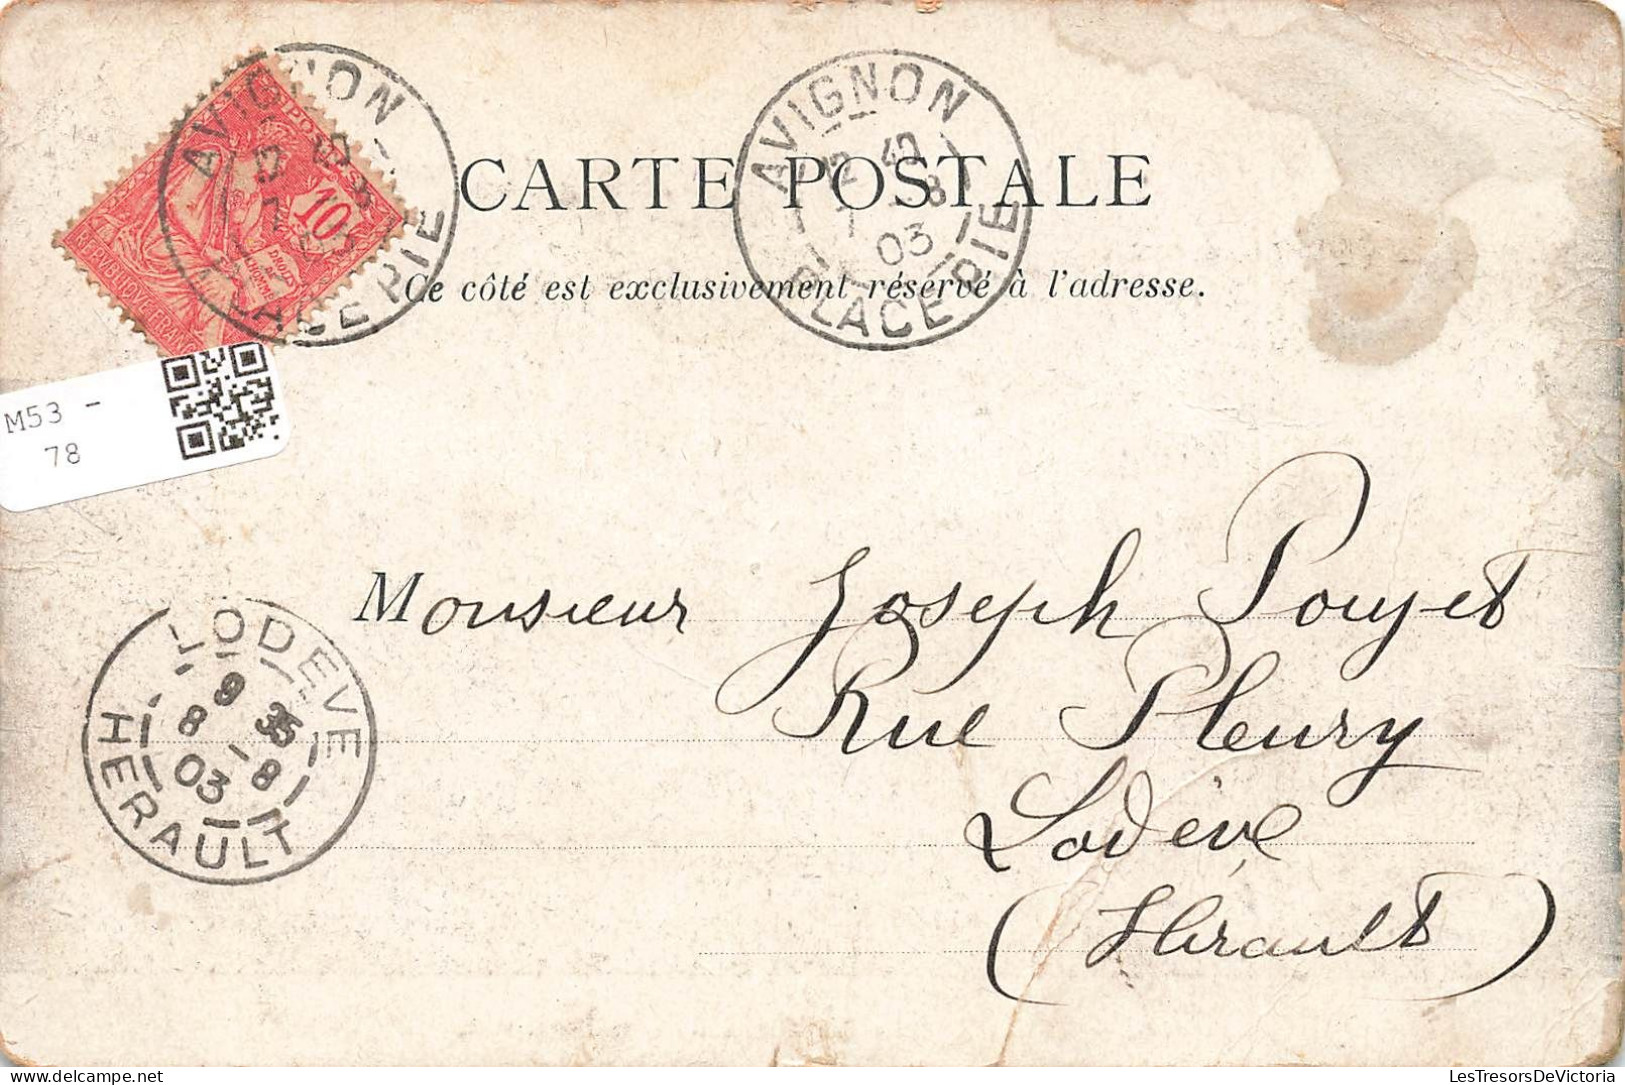 AVIGNON
POSTES
10
DROITS
DE
L'HOMME
PLACE PIE
AVIGNON
12 40
7 8
03
PLACE PIE
CARTE POSTALE
Ce côté est exclusivement réservé à l'adresse.
M53 -
78
Monsieur Joseph Pouget
Rue Fleury
Lodève
(Hérault)
LODEVE
9 35
8 - 8
03
HERAULT
LesTresorsDeVictoria